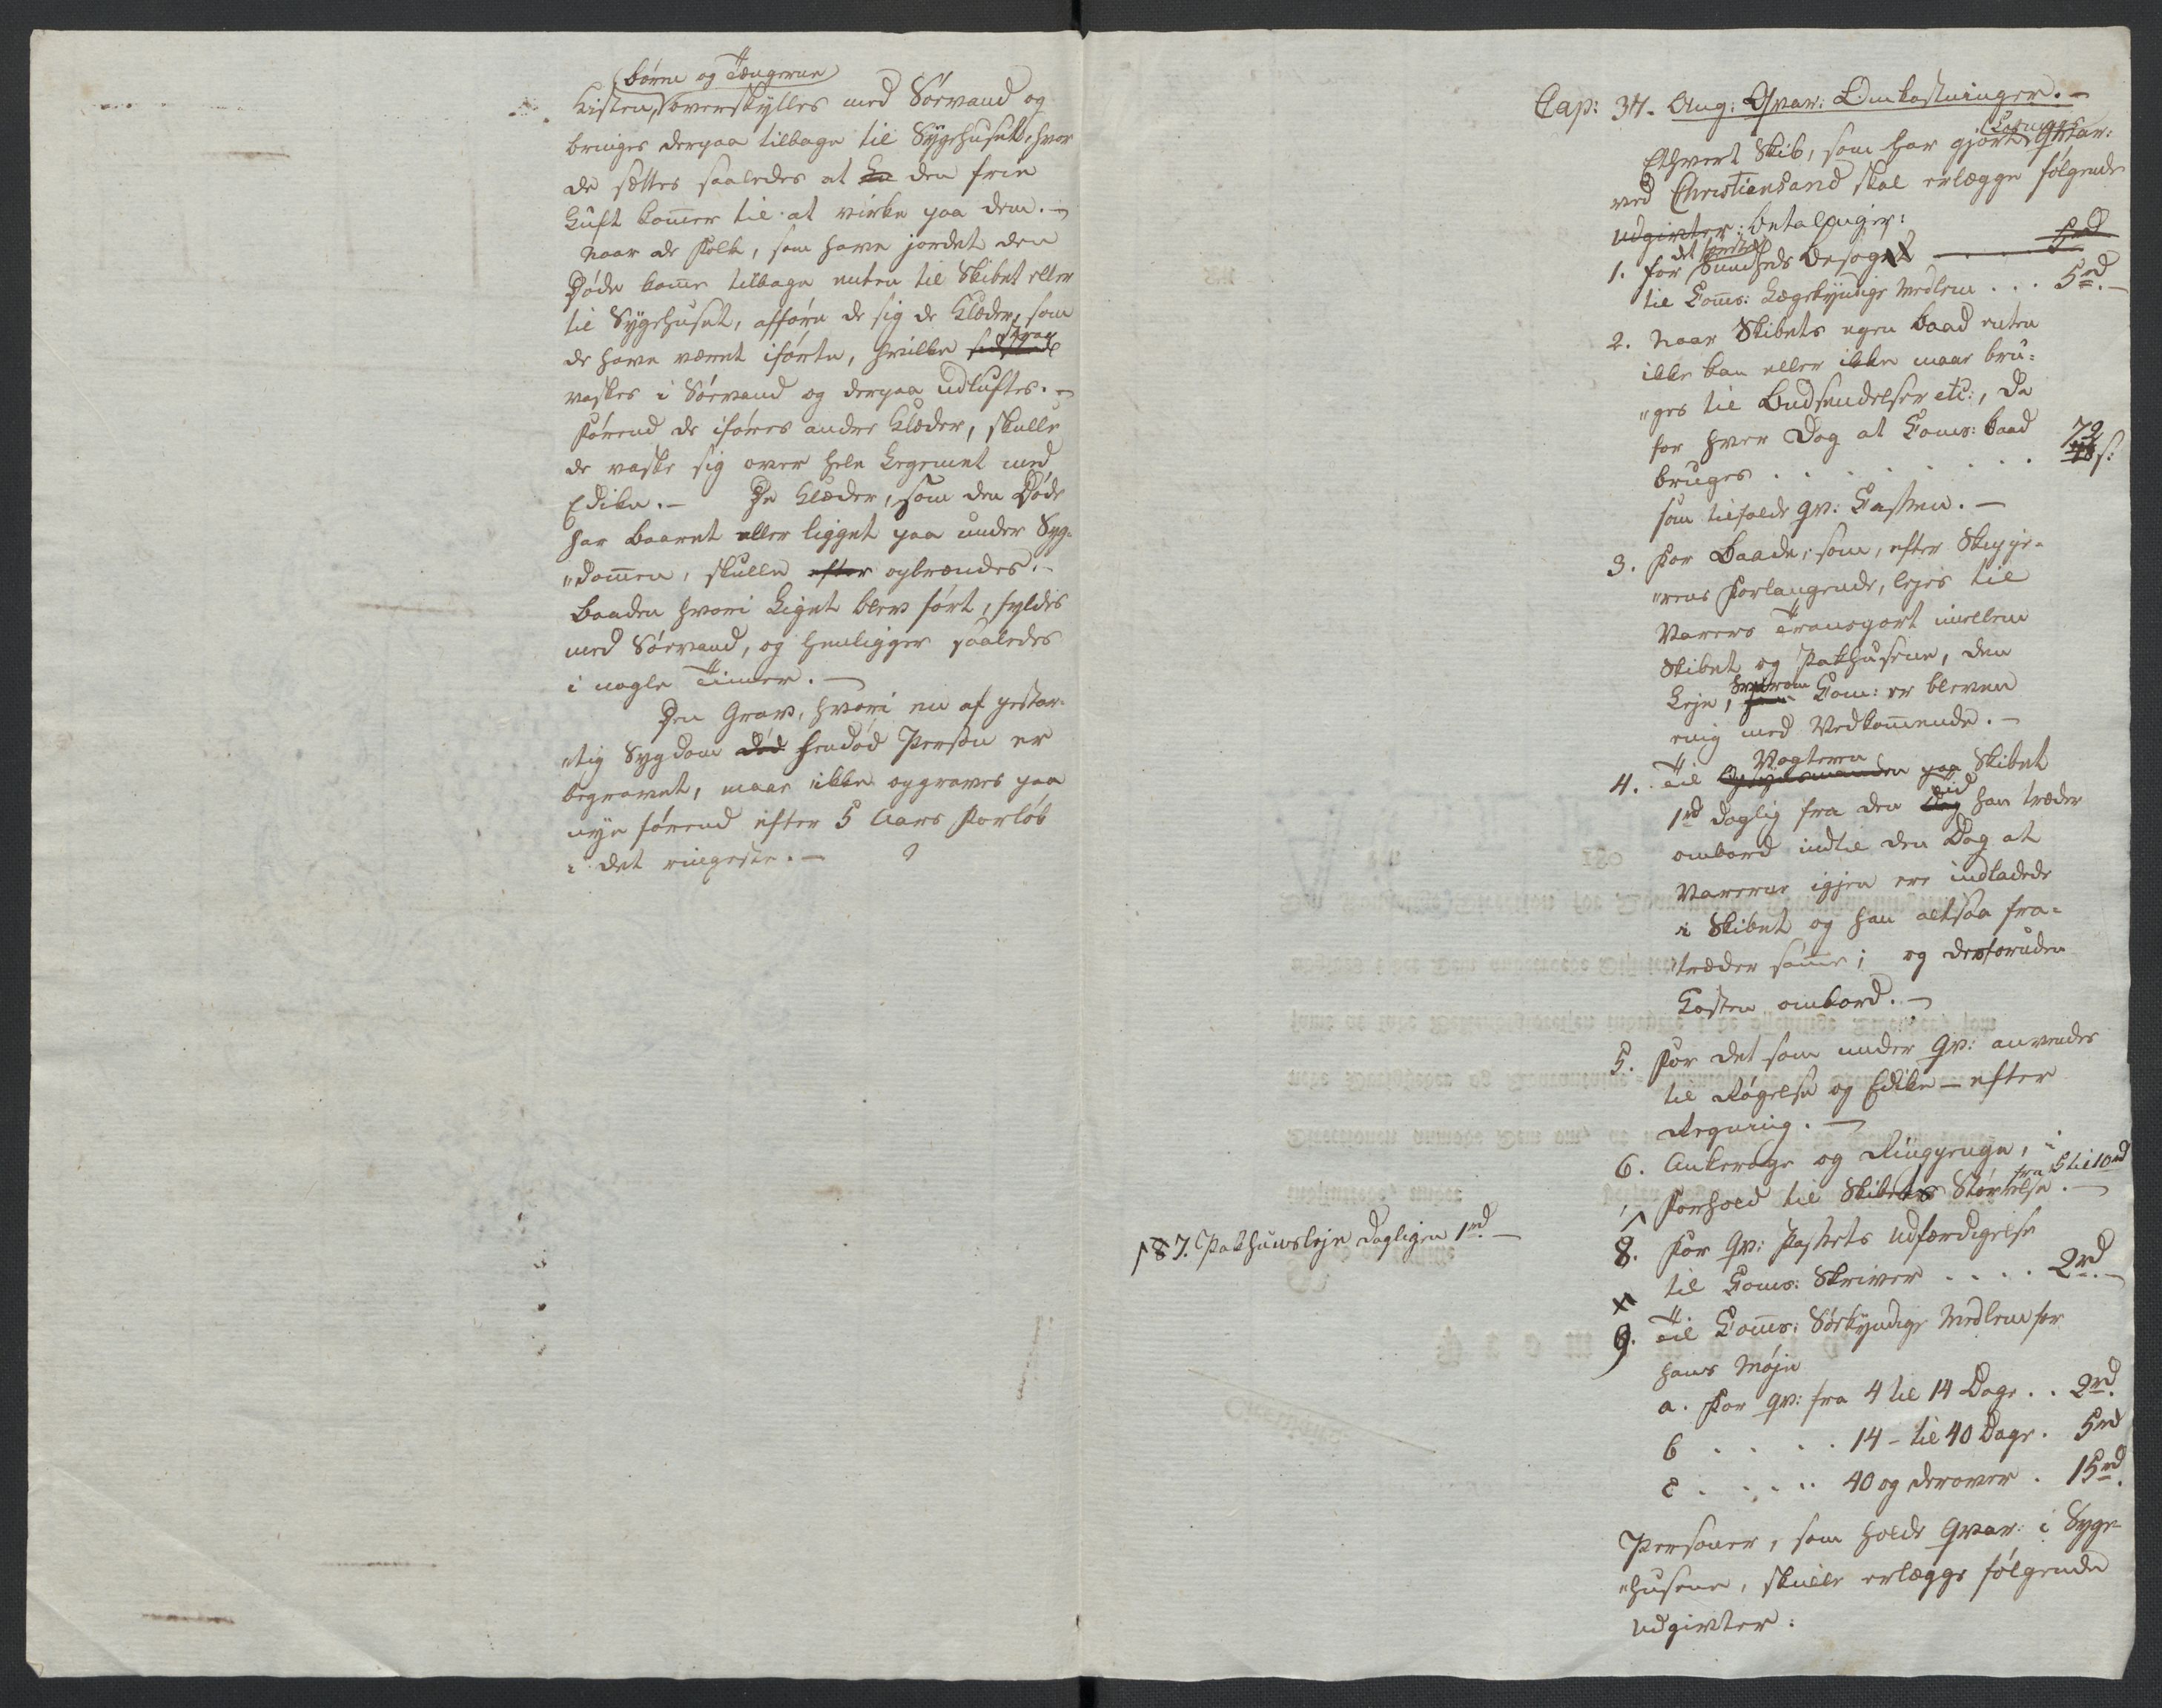 Børen og Tængerne
Kisten, overskylles med Søevand og
bringes derpaa tilbage til Sÿgehuset, hvor
de sættes saaledes at den frie
Luft kom̅er til at virke paa dem. –
Naar de Folk, som have jordet den
Døde kom̅e tilbage enten til Skibet eller
til Sÿgehuset, afføre de sig de Klæder, som
strax
de have været iførte, hvilke sidstmeldte
vaskes i Søevand og derpaa udluftes. –
Førend de iføres andre Klæder, skulle
de vaske sig over hele Legemet med
Edike. – De Klæder, som den Døde
har baaret eller ligget paa under Syg-
„dom̅en, skulle efter opbrændes. –
Baaden hvori Liget blev ført, fyldes
med Søevand, og henligger saaledes
i nogle Timer. –
Den Grav, hvori en af pestar-
„tig Sygdom død hendød Person er
begravet, maae ikke opgraves paa
nye førend efter 5 Aars Forløb
i det ringeste. –
Cap: 34. Ang: Qvar: Omkostninger. –
Ethvert Skib, som har gjort Qvar:
ved Christiansand skal erlægge følgende
Udgivter: betalinger:
det første
1. for Sundheds Besøget 5rd
til Com̅s: Lægekyndige Medlem . . . 5rd. –
2. Naar Skibets egen Baad enten
ikke kan eller ikke maae bru-
„ges til Budsendelser etc:, da
for hver Dag at Coms: Baad
72
bruges . . . . . . . . . 48 s:
som tilfalde qv: Cassen. –
3. For Baade, som, efter Skippe-
„rens Forlangende, lejes til
Varers Transport imellem
Skibet og Pakhusene, den
hvorom
Leje, som Com: er bleven
enig med Vedkom̅ende. –
Vagteren
4. Til Opsynsmanden paa Skibet
Tid
1rd daglig fra den Dag han træder
ombord indtil den Dag at
Varerne igjen ere indladede
i Skibet og han altsaa fra-
„træder sam̅e; og desforuden
Kosten ombord. –
5. For det som under Qv: anvendes
til Røgelse og Edike – efter
Regning. –
6. Ankerage og Ringpenge, i
fra 5 til 10rd
Forhold til Skibets Størrelse. –
⌈87. Pakhuusleje dagligen 1rd. –
8. For Qv: Passets Udfærdigelse
til Coms: Skriver . . . . 2rd. –
9. Til Com̅s: Søekyndige Medlem for
hans Møje
a. For qv: fra 4 til 14 Dage . . 2rd.
b . . . . 14 – til 40 Dage . 5rd
c . . . . 40 og derover . 15rd.
Personer, som holde Qvar: i Syge-
„husene, skulle erlægge følgende
Udgivter: